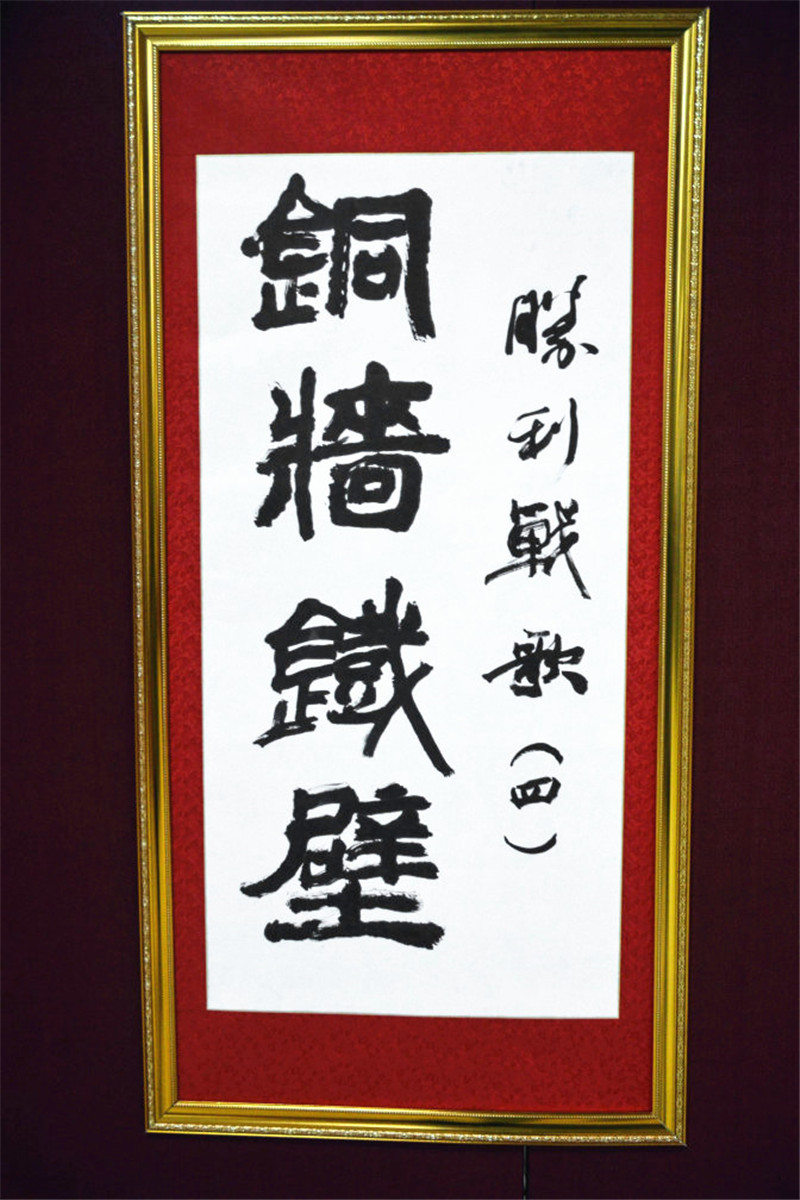 勝利戰歌（四）
銅牆鐵壁